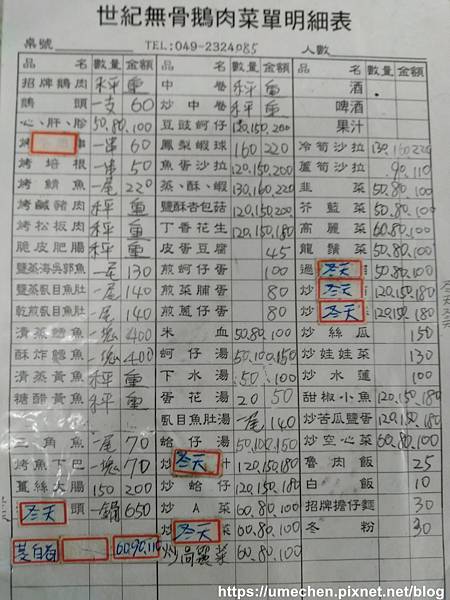 世紀無骨鵝肉菜單明細表
桌號 TEL:049-2324085 人數
品名 數量 金額 品名 數量 金額 品名 數量 金額
招牌鵝肉 秤重 中卷 秤重 酒
鵝頭 一支 60 炒中卷 秤重 啤酒
心、肝、胗 50.80.100 豆豉蚵仔 120.150.200 果汁
烤 一串 60 鳳梨蝦球 160 220 冷筍沙拉 130.160.220
烤培根 一串 50 魚蛋沙拉 120.150.200 蘆筍沙拉 90.110
烤鯖魚 一尾 220 蒸、酥、蝦 130.160.220 韭菜 50.80.100
烤鹹豬肉 秤重 鹽酥杏包菇 120.150.200 芥藍菜 50.80.100
烤松板肉 秤重 丁香花生 120.150.180 高麗菜 60.80.100
脆皮肥腸 秤重 皮蛋豆腐 45 龍鬚菜 50.80.100
豐蒸海吳郭魚 一尾 130 煎蚵仔蛋 100 過 冬天 50.80.100
豐蒸虱目魚肚 一尾 140 煎菜脯蛋 80 炒 冬天 120.150.180
乾煎虱目魚肚 一尾 140 煎蔥仔蛋 80 炒 冬天 120.150.180
清蒸鱈魚 一塊 400 米血 50.80.100 炒絲瓜 150
酥炸鱈魚 一塊 400 蚵仔湯 50.100.150 炒娃娃菜 130
清蒸黃魚 秤重 下水湯 50 100 炒水蓮 100
糖醋黃魚 秤重 蛋花湯 20 50 甜椒小魚 120.150.180
虱目魚肚湯 一尾 140 炒苦瓜鹽蛋 120.150.180
三角魚 一尾 70 蛤仔湯 50.100.150 炒空心菜 60.80.100
烤魚下巴 一塊 70 炒 冬天 120.150.180 魯肉飯 25
薑絲大腸 150 200 炒蛤仔 120.150.180 白飯 10
冬天 頭 一鍋 650 炒A菜 60.80.100 招牌擔仔麵 30
炒 冬天 60.80.100 冬粉 30
60.90.110 炒高麗菜 60.80.100
https://umechen.pixnet.net/blog